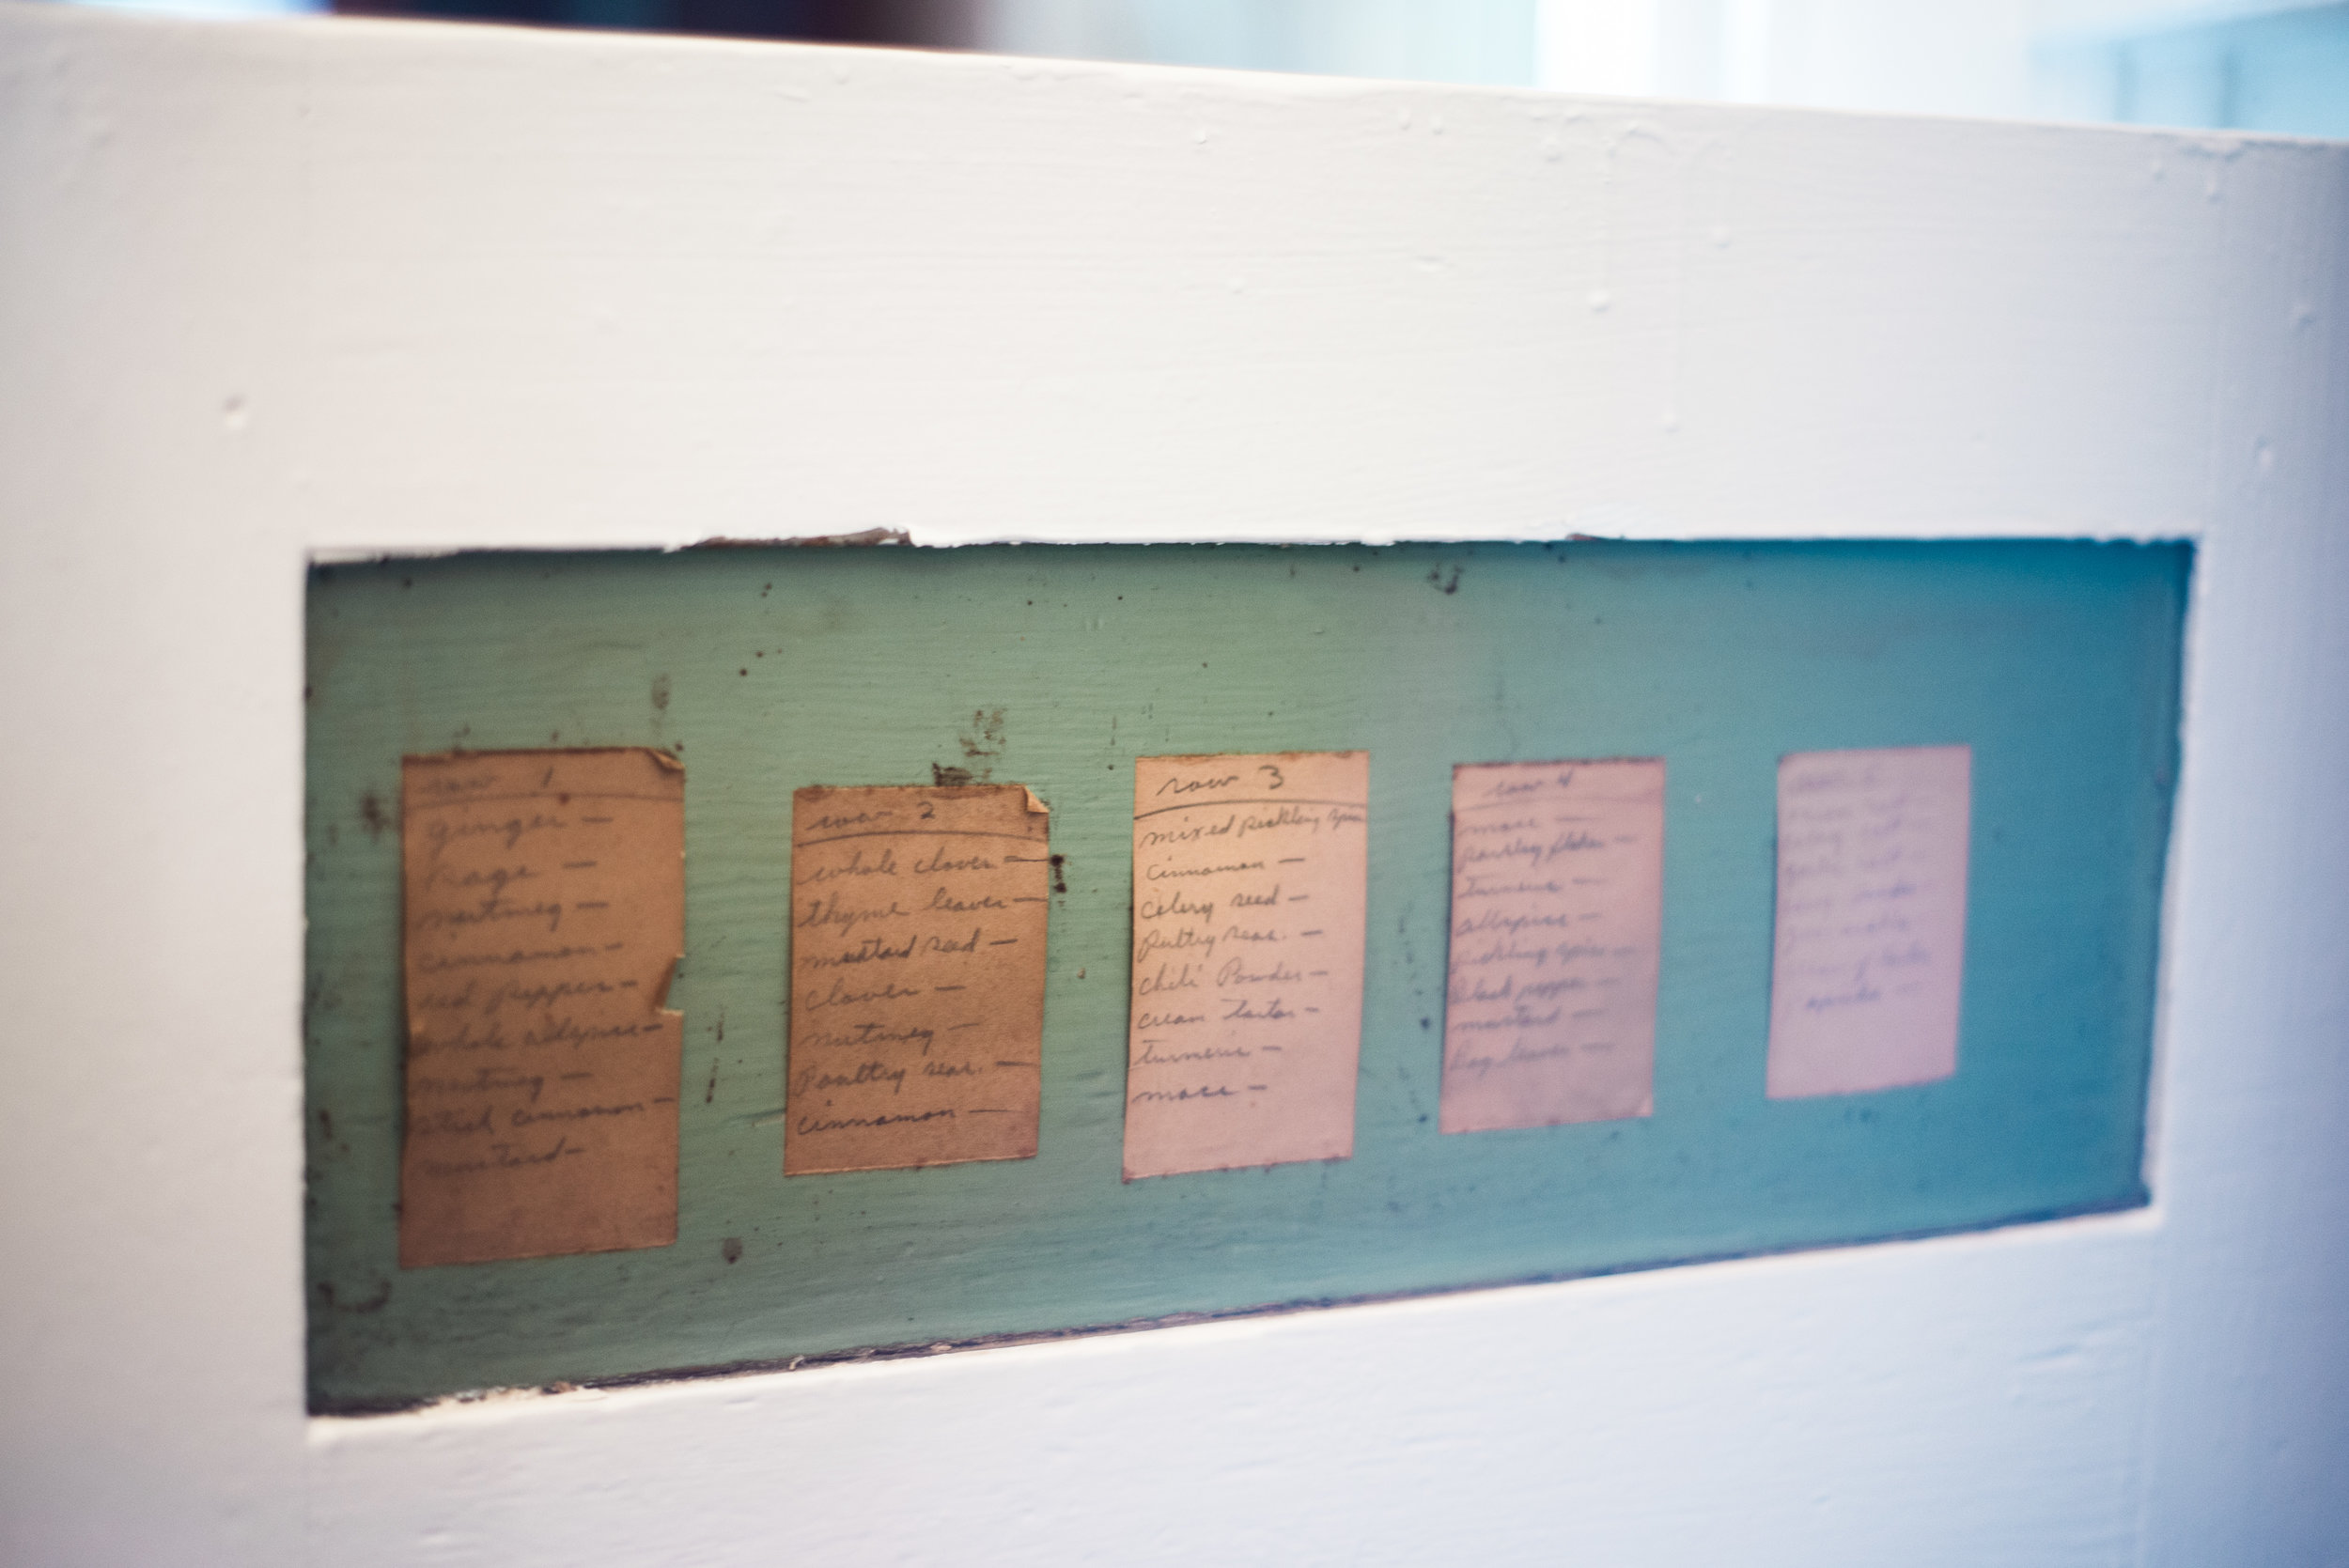 row 1
ginger —
sage —
nutmeg —
cinnamon —
red pepper —
whole allspice —
nutmeg —
stick cinnamon —
mustard —
row 2
whole cloves —
thyme leaves —
mustard seed —
cloves —
nutmeg —
Poultry seas. —
cinnamon —
row 3
mixed pickling spice
cinnamon —
celery seed —
Pultry seas. —
chili Powder —
cream tartar —
turmeric —
mace —
row 4
mace —
parsley flakes —
turmeric —
allspice —
pickling spice —
black pepper —
mustard —
Bay leaves —